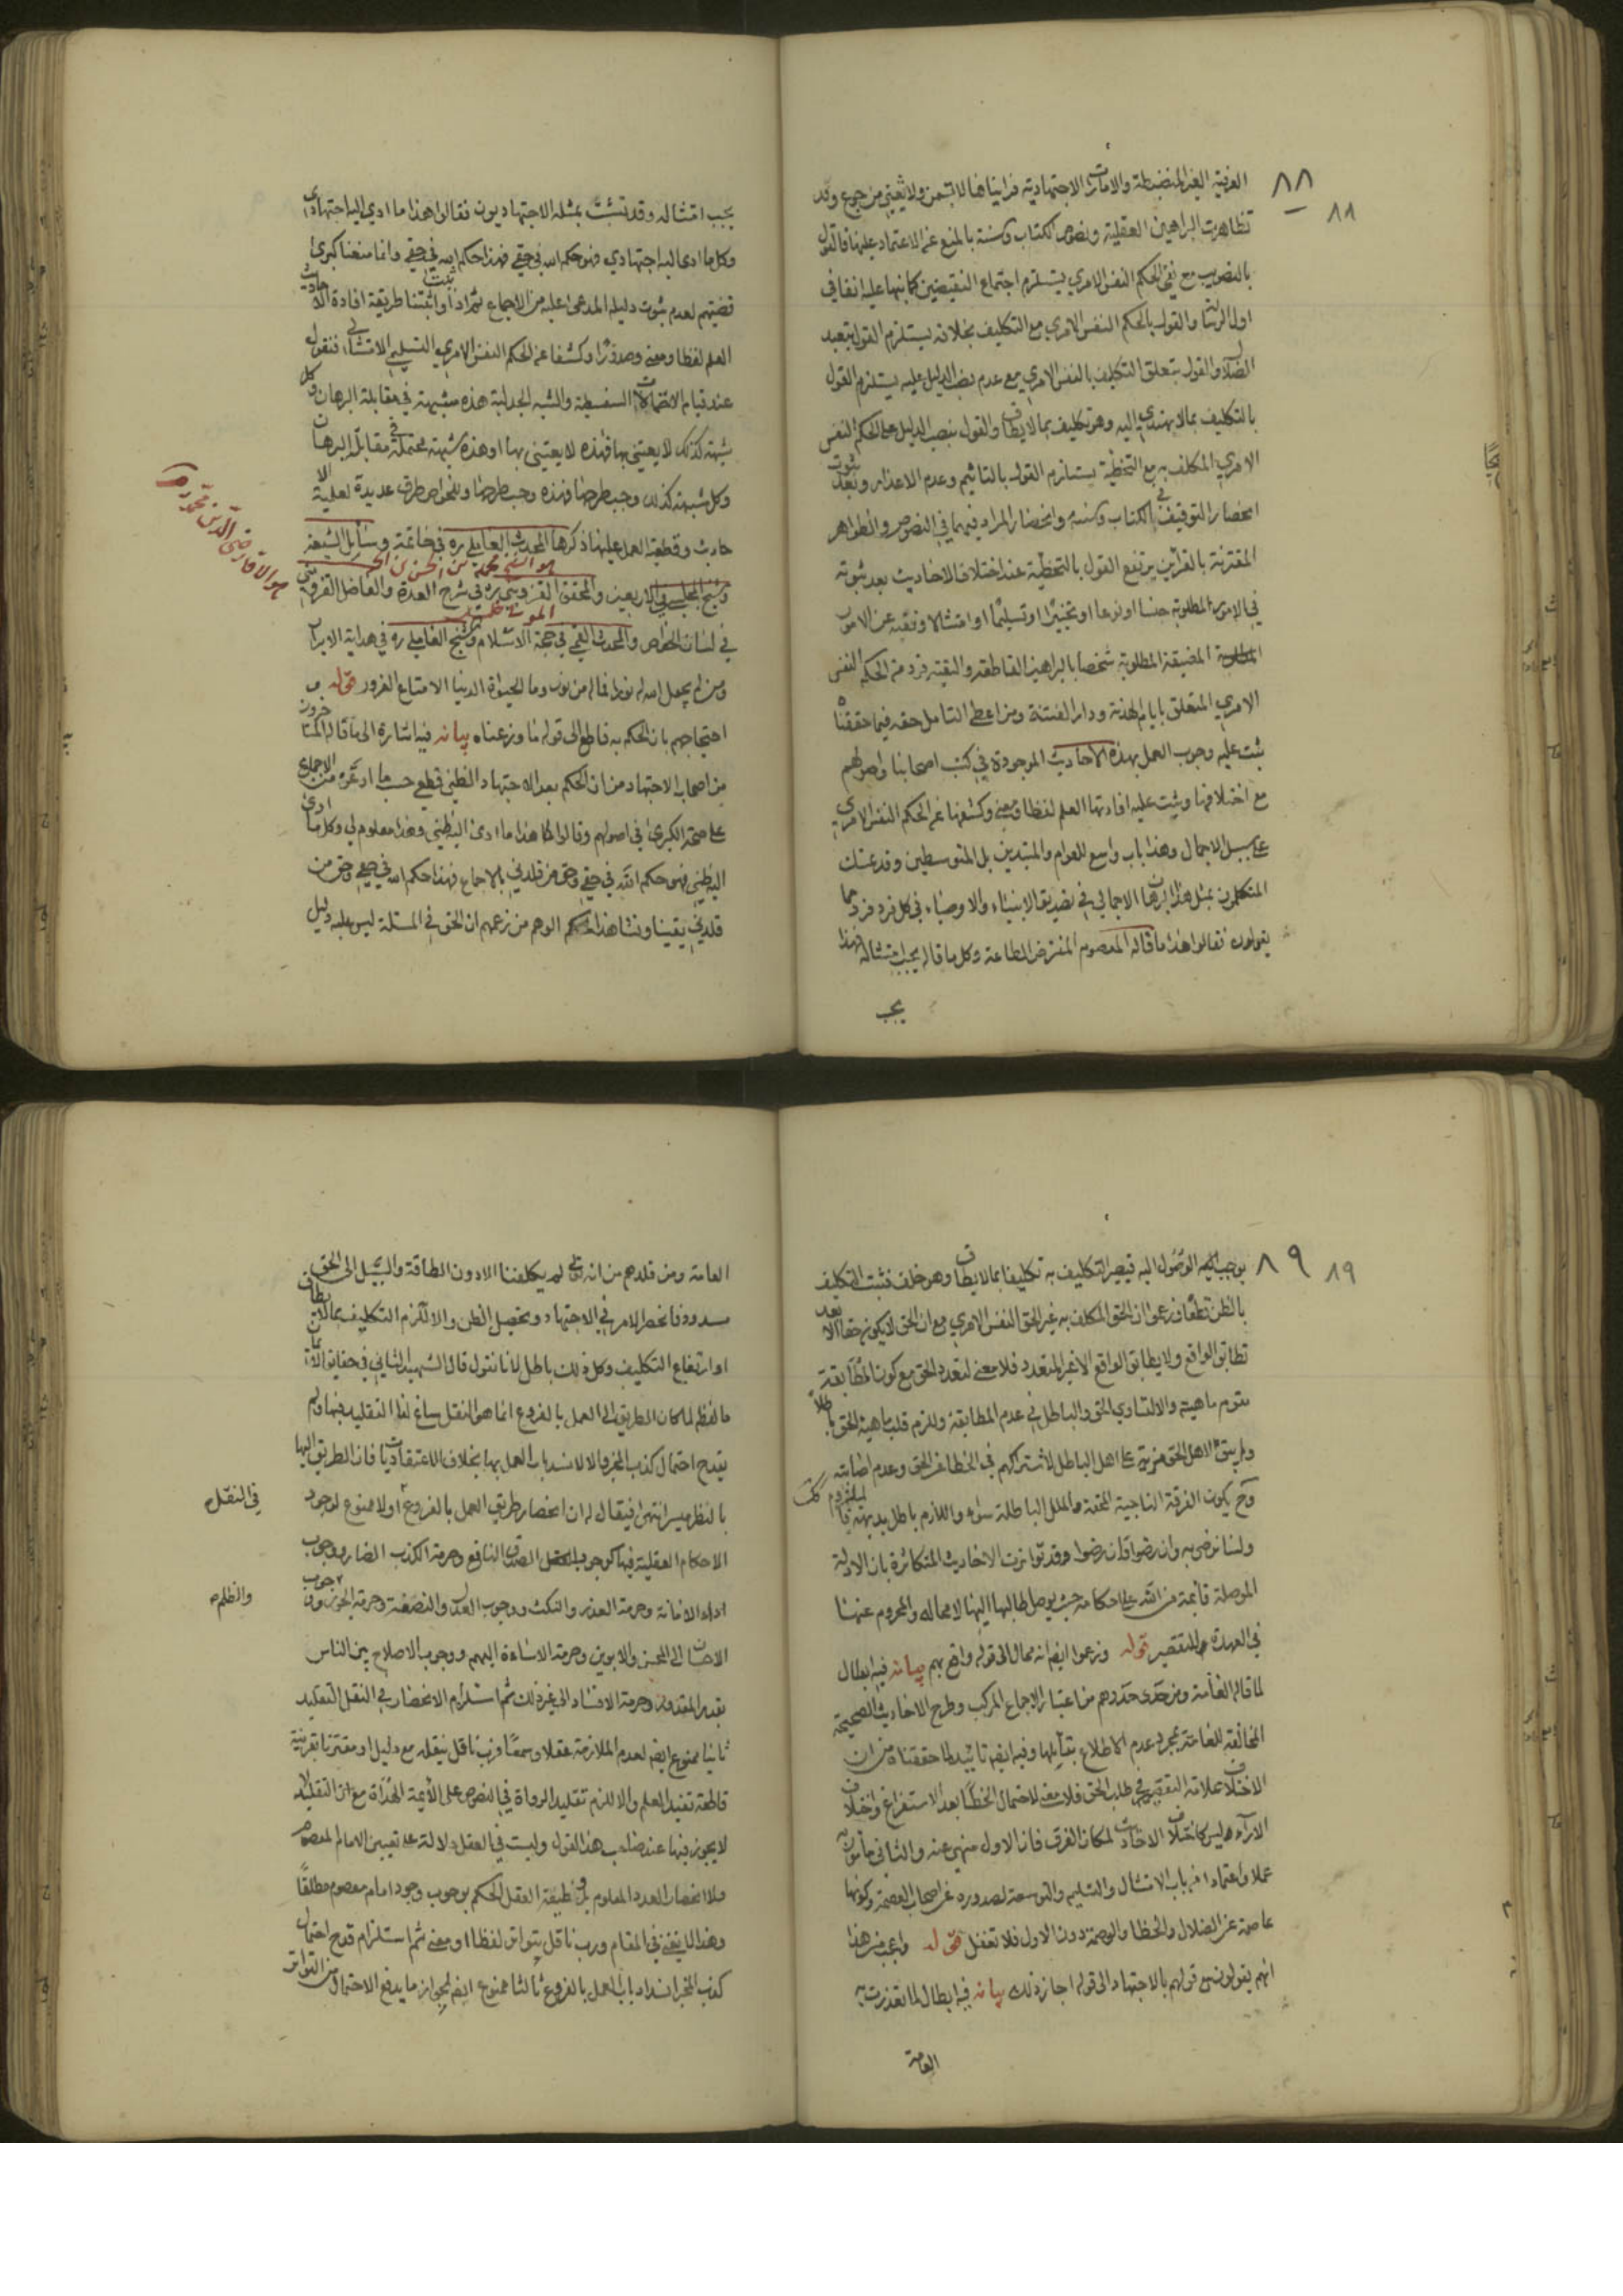 ٨٨
العرفية الغير المنضبطة والامارات الاجتهادية فرايناها لا تسمن ولا تغني من جوع وقد
تظاهرت البراهين العقلية ونصوص الكتاب والسنة بالمنع عن الاعتماد عليها فالقول
بالتصويب مع نفي الحكم النفس الامري يستلزم اجتماع النقيضين كما نبهنا عليه انفا في
اول الرسالة والقول بالحكم النفس الامري مع التكليف بخلافه يستلزم القول بتعبد
الضلال والقول بتعلق التكليف بالنفس الامري مع عدم نصب الدليل عليه يستلزم القول
بالتكليف بما لا يهتدي اليه وهو تكليف بما لا يطاق والقول بنصب الدليل على الحكم النفس
الامري المكلف به مع التخطئة يستلزم القول بالتاثيم وعدم الاعذار وبعد ثبوت
انحصار التوقيف في الكتاب والسنة وانحصار المراد فيهما في النصوص والظواهر
المقترنة بالقراين يرتفع القول بالتخطئة عند اختلاف الاحاديث بعد ثبوته
في الامور المطلوبة جنسا او نوعا او تخييرا او تسليما او امتثالا وفقية عن الامور
المضيقة المطلوبة شخصا بالبراهين القاطعة والتقية فرد من الحكم النفس
الامري المتعلق بايام الهدنة ودار الفتنة ومن اعطى التامل حقه فيما حققناه
ثبت عليه وجوب العمل بهذه الاحاديث الموجودة في كتب اصحابنا واصولهم
مع اختلافها ويثبت عليه افادتها العلم لفظا ومعنى وكشفها عن الحكم النفس الامري
على سبيل الاجمال وهذا باب واسع للعوام والمبتدين بل المتوسطين وقد تمسك
المتكلمون بمثل هذا البرهان الاجمالي في تصديق الانبياء والاوصياء في كل فرد فرد مما
يقولون فقالوا هذا ما قاله المعصوم المفترض الطاعة وكل ما قاله يجب امتثاله فهذا
يجب
يجب امتثاله وقد تشبث بمثله الاجتهاديون فقالوا هذا ما ادى اليه اجتهادي
وكل ما ادى اليه اجتهادي فهو حكم الله في حقي فهذا حكم الله في حقي وانما منعنا كبرى
قضيتهم لعدم ثبوت دليله المدعى عليه من الاجماع ثم اذا ثبت واثبتنا طريقة افادة الاحاديث
العلم لفظا ومعنى وصدورا وكشفا عن الحكم النفس الامري التسليمي الامتثالي فنقول
عند قيام الاحتمالات السفسطية والشبه الجدلية هذه شبهة في مقابلة البرهان وكل
شبهة كذلك لا يعتني بها فهذه لا يعتني بها او هذه شبهة محتملة في مقابلة البرهان
وكل شبهة كذلك وجب طرحها فهذه وجب طرحها وللخواص طرق عديدة لعلمية الا
حاديث وقطعية العمل عليها ذكرها المحدث العاملي ره في خاتمة وسائل الشيعة
هو الشيخ محمد بن الحسن بن الحر
وشيخ المجلسي في الاربعين والمحقق القزويني ره في شرح العدة والفاضل القزويني
المولى خليل
هو الاقا رضي الدين محمد ره
في لسان الخواص والمحدث القمي في حجة الاسلام وشيخ العاملي ره في هداية الابرار
ومن لم يجعل الله له نورا فما له من نور وما الحيوة الدنيا الا متاع الغرور قوله و
احتجاجهم بان الحكم به قاطع الى قوله ما وزعناه بيانه فيه اشارة الى ما قاله المتاخرون
من اصحاب الاجتهاد من ان الحكم بعد الاجتهاد الظني قطعي حسب ما ادعوه من الاجماع
على صحة الكبرى في اصولهم وقالوا هكذا هذا ما ادى اليه ظني وهذا معلوم لي وكل ما ادى
اليه ظني فهو حكم الله في حقي وحق من قلدني بالاجماع فهذا حكم الله في حقي وحق من
قلدني يقينا ونشا هذا الوهم من زعمهم ان الحق في المسئلة ليس عليه دليل
٨٩
يوجب لهم الوصول اليه فيصير التكليف به تكليفا بما لا يطاق وهو خلف فثبت التكليف
بالظن قطعا وزعموا ان الحق المكلف به غير الحق النفس الامري مع ان الحق لا يكون حقا الا بعد
تطابق الواقع ولا يطابق الواقع الا غير المتعدد فلا معنى لتعدد الحق مع كون المطابقة
مقوم ماهيته والا لتساوى الحق والباطل في عدم المطابقة ولزم قلب ماهية الحق باطلا
ولم يبق لاهل الحق مزية على اهل الباطل لاشتراكهم في الخطا عن الحق وعدم اصابته
وح يكون الفرقة الناجية المحقة والملل الباطلة سواء واللازم باطل بديهة فالملزوم كك
ولسنا نرضى به وان رضوا فان رضوا وقد تواترت الاحاديث المتكاثرة بان الادلة
الموصلة قائمة من الله على احكامه حيث يوصل طالبها اليها لا محالة والمحروم عنها
في العهدة والتقصير قوله وزعموا ايضا انه محال الى قوله واقع بهم بيانه فيه ابطال
لما قاله العامة ومن حذى حذوهم من اعتبار الاجماع المركب وطرح الاحاديث الصحيحة
المخالفة للعامة بمجرد عدم الاطلاع بقائلها وفيه ايضا تاييد لما حققناه من ان
الاختلاف علامة التقصير في طلب الحق فلا معنى لاحتمال الخطا بعد الاستفراغ واختلاف
الآراء وليس كاختلاف الاخبار لمكان الفرق فان الاول منهي عنه والثاني مامور به
عملا واعتمادا من باب الامتثال والتسليم والتوسعة لصدوره عن اصحاب العصمة وكونها
عاصمة عن الضلال والخطا والوصمة دون الاول فلا تغفل قوله واعجب من هذا
انهم يقولون مع قولهم بالاجتهاد الى قوله اجاز ذلك بيانه فيه ابطال لما تعذرت به
العامة
العامة ومن قلدهم من انه تعالى لم يكلفنا الا دون الطاقة والسبيل الى الحق
مسدود فانحصر الامر في الاجتهاد وتحصيل الظن والا لزم التكليف بما لا يطاق
او ارتفاع التكليف وكل ذلك باطل لانا نقول قال الشهيد الثاني في حقايق الايمان
ما لفظه لما كان الطريق الى العمل بالفروع انما هو النقل ساغ لنا التقليد فيها ولم
يقدح احتمال كذب المخبر والا لانسد باب العمل بها بخلاف الاعتقاديات فان الطريق اليها
بالنظر ميسر انتهى فيقال له ان انحصار طريق العمل بالفروع اولا ممنوع لوجود
في النقل
الاحكام العقلية فيها كوجوب الصدق النافع وحرمة الكذب الضار ووجوب
اداء الامانة وحرمة الغدر والنكث ووجوب العدل والنصفة وحرمة الجور ووجوب
والظلم
الاحسان الى المحسن والابوين وحرمة الاساءة اليهم ووجوب الاصلاح بين الناس
بقدر المقدور وحرمة الافساد الى غير ذلك ثم استلزام الانحصار في النقل التقليد
ثانيا ممنوع ايضا لعدم الملازمة عقلا وسمعا فرب ناقل ينقله مع دليل او مقترنا بقرينة
قاطعة تفيد العلم والا لزم تقليد الرواة في النصوص على الأيمة الهداة مع ان التقليد
لا يجوز فيها عند صاحب هذا القول وليست في العقل دلالة على تعيين الامام المعصوم
ولا انحصار العدد المعلوم بل وظيفة العقل الحكم بوجوب وجود امام معصوم مطلقا
وهذا لا يغني في المقام ورب ناقل يتواتر لفظا او معنى ثم استلزام قدح احتمال
كذب المخبر انسداد باب العمل بالفروع ثالثا ممنوع ايضا لجواز ما يدفع الاحتمال من التواتر